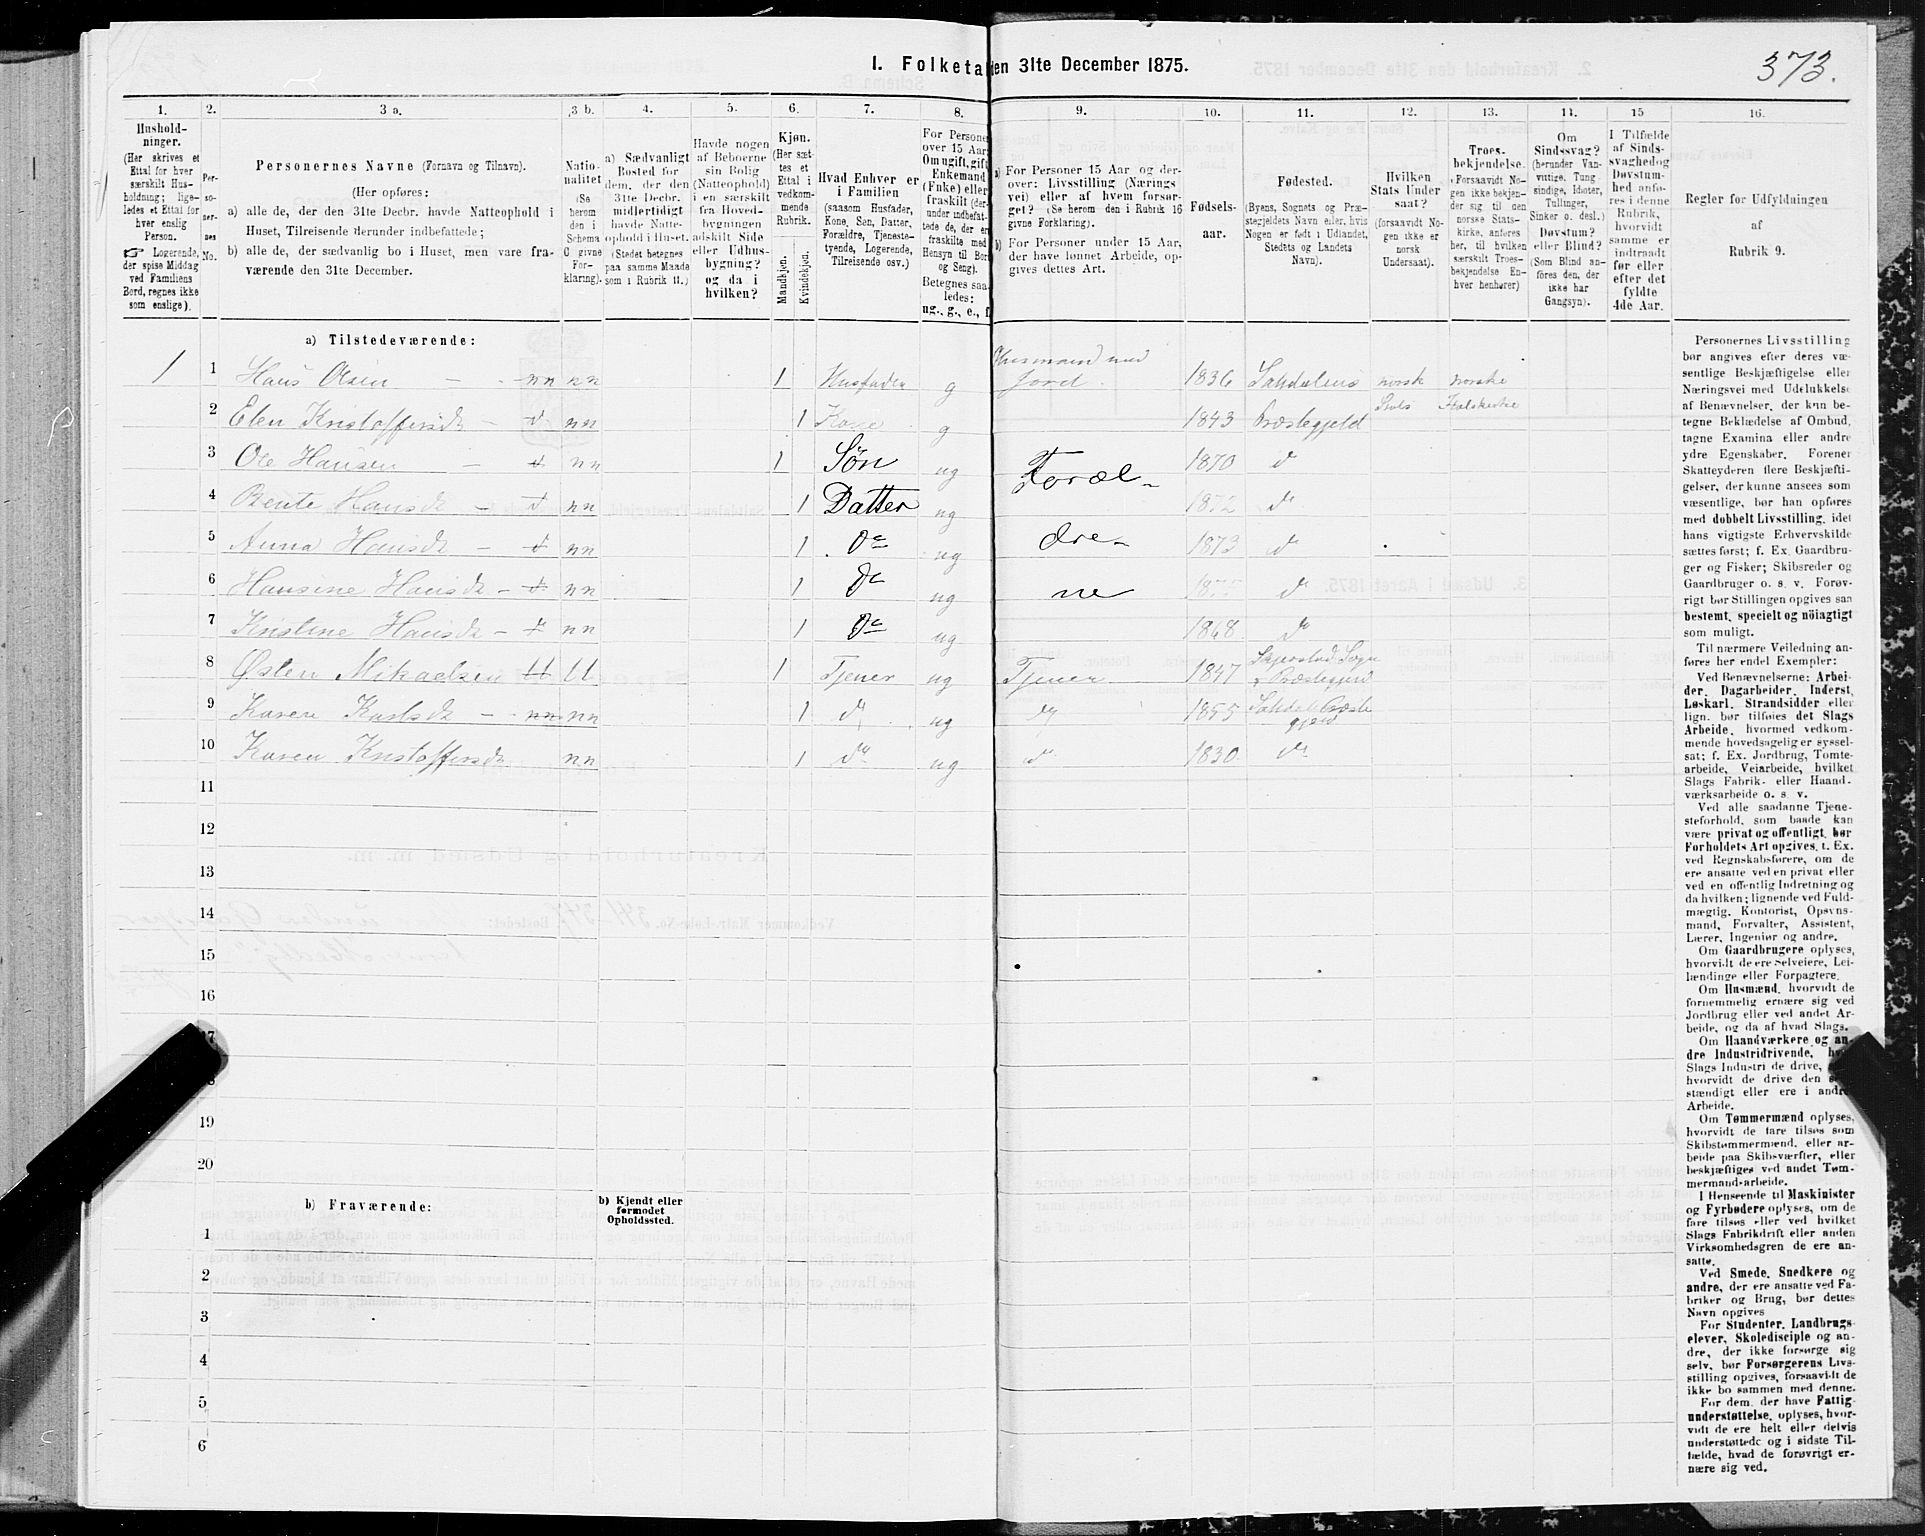 I. Folketal den 31te December 1875.
373.
1. 2. 3 a. 3 b. 4. 5. 6. 7. 8. 9. 10. 11. 12. 13. 14. 15 16.
Hushold-
ninger.
(Her skrives et
Ettal for hver
særskilt Hus-
holdning; lige-
ledes et Ettal for
hver enslig
Person.
☞ Logerende,
der spise Middag
ved Familiens
Bord, regnes ikke
som enslige).
Per-
so-
ner-
nes
No.
Personernes Navne (Fornavn og Tilnavn).
(Her opføres:
a) alle de, der den 31te Decbr. havde Natteophold i
Huset, Tilreisende derunder indbefattede;
b) alle de, der sædvanlig bo i Huset, men vare fra-
værende den 31te December.
Natio-
nalitet
(Se
herom
den i
Schema
C givne
For-
klaring).
a) Sædvanligt
Bosted for
dem, der den
31te Decbr.
midlertidigt
havde Natte-
ophold i Huset.
(Stedet betegnes
paa samme Maade
som i Rubrik 11.)
Havde nogen
af Beboerne
sin Bolig
(Natteophold)
i en særskilt
fra Hoved-
bygningen
adskilt Side
eller Udhus-
bygning?
og da i
hvilken?
Kjøn.
(Her sæt-
tes et
Ettal i
vedkom-
mende
Rubrik.
Mandkjøn.
Kvindekjøn.
Hvad Enhver er
i Familien
(saasom Husfader,
Kone, Søn, Datter,
Forældre, Tjeneste-
tyende, Logerende,
Tilreisende osv.)
For Personer
over 15 Aar:
Om ugift, gift,
Enkemand
(Enke) eller
fraskilt (der-
under indbefat-
tede de, der ere
fraskilte med
Hensyn til Bord
og Seng).
Betegnes saa-
ledes:
ug., g., e., f.
a) For Personer 15 Aar og der-
over: Livsstilling (Nærings-
vei) eller af hvem forsør-
get? (Se herom den i Rubrik 16
givne Forklaring).
b) For Personer under 15 Aar,
der have lønnet Arbeide, op-
gives dettes Art.
Fødsels-
aar.
Fødested.
(Byens, Sognets og Præ-
stegjeldets Navn eller, hvis
Nogen er født i Udlandet,
Stedets og Landets
Navn).
Hvilken
Stats Under-
saat?
(forsaavidt No-
gen ikke er
norsk
Undersaat).
Troes-
bekjendelse.
(Forsaavidt No-
gen ikke bekjen-
der sig til den
norske Stats-
kirke, anføres
her, til hvilken
særskilt Troes-
bekjendelse En-
hver henhører)
Om
Sindssvag?
(herunder Van-
vittige, Tung-
sindige, Idioter,
Tullinger,
Sinker o. desl.)
Døvstum?
eller Blind?
(Som Blind an-
føres den, der
ikke har
Gangsyn).
I Tilfælde
af Sinds-
svaghed og
Døvstum-
hed anfø-
res i denne
Rubrik,
hvorvidt
samme er
indtraadt
før eller
efter det
fyldte
4de Aar.
Regler for Udfyldningen
af
Rubrik 9.
a) Tilstedeværende:
1 1 Hans Olsen nn nn 1 Husfader g Husmand med Jord. 1836 Saltdalens norsk norske
2 Elen Kristoffersdr nn 1 Kone g 1843 Præstegjeld Stats Statskirke
3 Ole Hansen nn 1 Søn ug Foræl- 1870 do
4 Bente Hansdr nn 1 Datter ug 1872 do
5 Anna Hansdr nn 1 do ug dre- 1873 do
6 Hansine Hansdr nn 1 do ug ne 1875 do
7 Kristine Hansdr nn 1 do ug 1868 do
8 Østen Mikaelsen U U 1 Tjener ug Tjener 1847 Skjerstad Sogn & Præstegjeld
9 Karen Karlsdr nn nn 1 do ug do 1855 Saltdals Præstegjeld
10 Karen Kristoffersdr nn 1 do ug do 1830 do
11
12
13
14
15
16
17
19
20
b) Fraværende:
b) Kjendt eller
formodet
Opholdssted.
1
2
3
4
5
6
Personernes Livsstilling
bør angives efter deres væ-
sentlige Beskjæftigelse eller
Næringsvei med Udelukkelse
af Benævnelser, der kun be-
tegne Beklædelse af Ombud,
tagne Examina eller andre
ydre Egenskaber. Forener
Skatteyderen flere Beskjæfti-
gelser, der kunne ansees som
væsentlige, bør han opføres
med dobbelt Livsstilling, idet
hans vigtigste Erhvervskilde
sættes først; f. Ex. Gaardbru-
ger og Fisker; Skibsreder og
Gaardbruger o. s. v. Forøv-
rigt bør Stillingen opgives saa
bestemt, specielt og nöiagtigt
som muligt.
Til nærmere Veiledning an-
føres her endel Exempler:
Ved Benævnelserne: Arbei-
der, Dagarbeider, Inderst,
Løskarl, Strandsidder eller
lign. bør tilføies det Slags
Arbeide, hvormed vedkom-
mende hovedsagelig er syssel-
sat; f. Ex. Jordbrug, Tomte-
arbeide, Veiarbeide, hvilket
Slags Fabrik- eller Haand-
værksarbeide o. s. v.
Ved alle saadanne Tjene-
steforhold, som baade kan
være privat og offentligt, bør
Forholdets Art opgives, t. Ex.
ved Regnskabsførere, om de
ere ansatte ved en privat eller
ved en offentlig Indretning og
da hvilken; lignende ved Fuld-
mægtig, Kontorist, Opsyns-
mand, Forvalter, Assistent,
Lærer, Ingeniør og andre.
Om Gaardbrugere oplyses,
hvorvidt de ere Selveiere, Lei-
lændinge eller Forpagtere.
Om Husmænd, hvorvidt de
fornemmelig ernære sig ved
Jordbrug eller ved andet Ar-
beide, og da af hvad Slags.
Om Haandværkere og an-
dre Industridrivende, hvad
Slags Industri de drive,
hvorvidt de drive den
stændigt eller ere i andres
Arbeide.
Om Tømmermænd oplyses,
hvorvidt de fare tilsøs som
Skibstømmermænd, eller ar-
beide paa Skibsværfter, eller
beskjæftiges ved andet Tøm-
mermandsarbeide.
I Henseende til Maskinister
og Fyrbødere oplyses, om de
fare tilsøs eller ved hvilket
Slags Fabrikdrift eller anden
Virksomhedsgren de ere an-
satte.
Ved Smede, Snedkere og
andre, der ere ansatte ved Fa-
briker og Brug, bør dettes
Navn opgives
For Studenter, Landbrugs-
elever, Skoledisciple og an-
dre, der ikke forsørge sig
selv, bør Forsørgerens Livs-
stilling opgives, forsaavidt de
ikke bo sammen med denne.
For dem, der have Fattig-
understøttelse, oplyses, hvor-
vidt de ere helt eller delvis
understøttede og i sidste Til-
fælde, hvad de forøvrigt er-
nære sig ved.